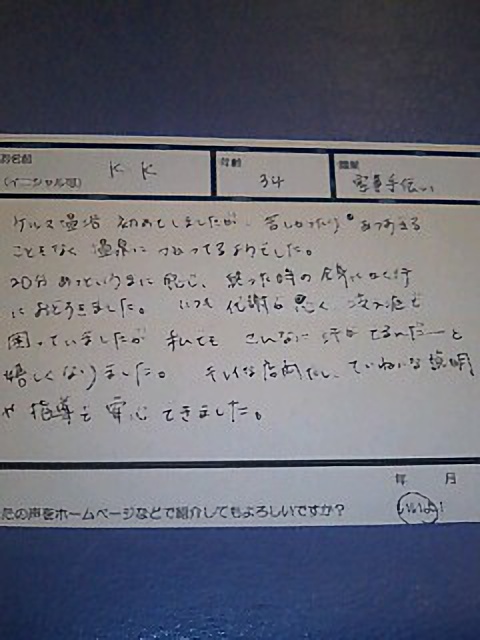 お名前 年齢 職業
(イニシャル可) K K 34 家事手伝い
ゲルマ温浴 初めてしましたが、苦しかったり あつすぎる
こともなく 温泉に つかってるようでした。
20分 あっというまに 感じ、終った時の
におどろきました。 いつも 代謝が悪く 冷え症で
困っていましたが 私でも こんなに 汗が でるんだーと
嬉しくなりました。 キレイな店内だし、ていねいな説明
や 指導で 安心 できました。
年 月
たの声をホームページなどで紹介してもよろしいですか? いいよ!